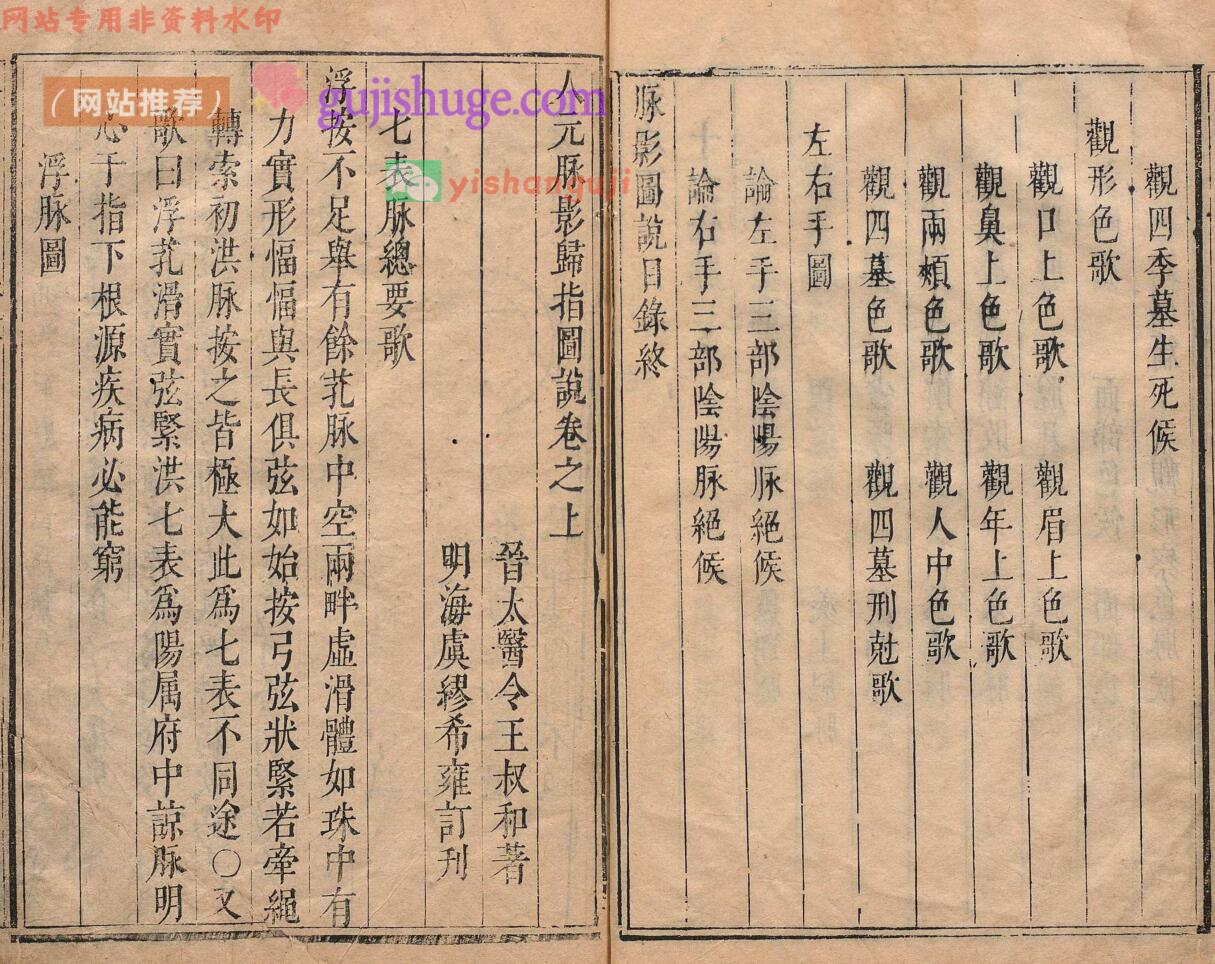 网站专用非资料水印
觀四季墓生死候
觀形色歌
觀口上色歌 觀眉上色歌
觀鼻上色歌 觀年上色歌
觀兩頰色歌 觀人中色歌
觀四墓色歌 觀四墓刑尅歌
左右手圖
論左手三部陰陽脉絕候
論右手三部陰陽脉絕候
脉影圖說目錄終
人元脉影歸指圖說卷之上
晉太醫令王叔和著
明海虞繆希雍訂刊
七表脉總要歌
浮按不足舉有餘芤脉中空兩畔虛滑體如珠中有
力實形愊愊與長俱弦如始按弓弦狀緊若牽繩
轉索初洪脉按之皆極大此為七表不同途〇又
歌曰浮芤滑實弦緊洪七表為陽属府中諒脉明
心于指下根源疾病必能窮
浮脉圖
(网站推荐)
gujishuge.com
yishanguji